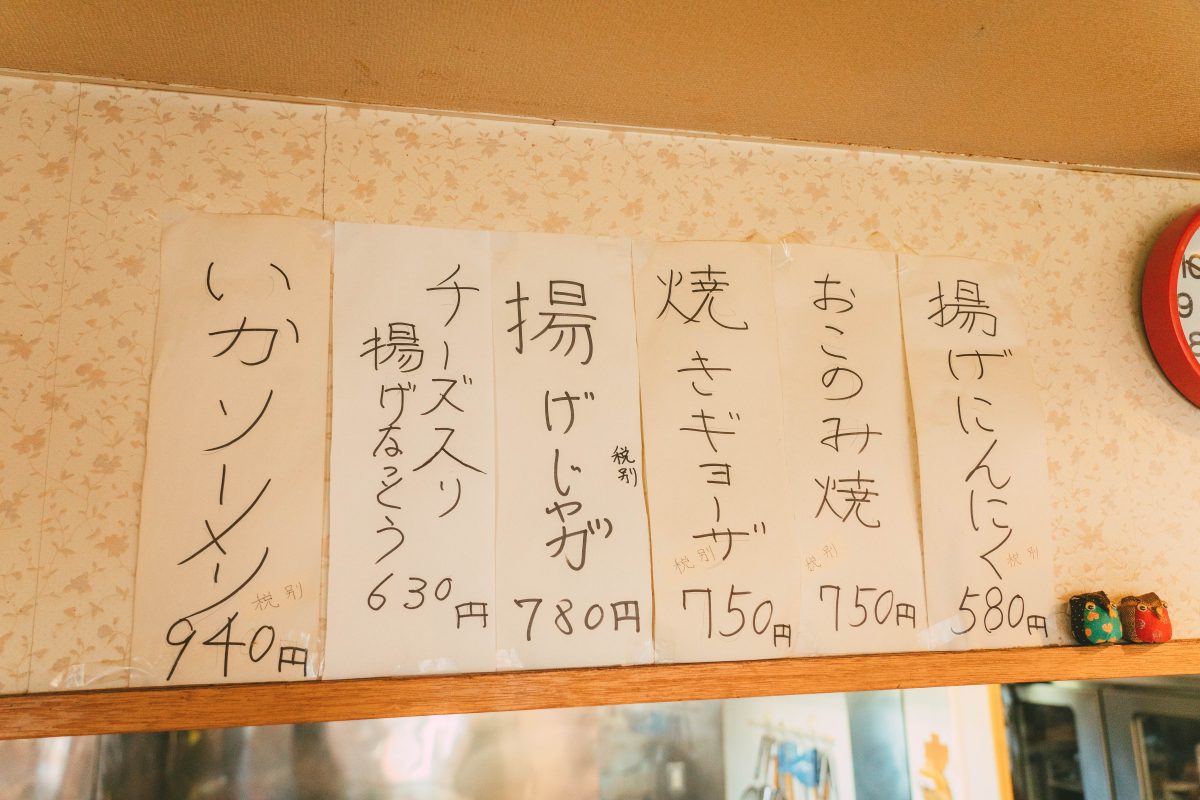 揚げにんにく
税別
580円
おこのみ焼
税別
750円
焼きギョーザ
税別
750円
揚げじゃが
税別
780円
チーズ入り
揚げなっとう
630円
いかソーメン
税別
940円
10
9
8